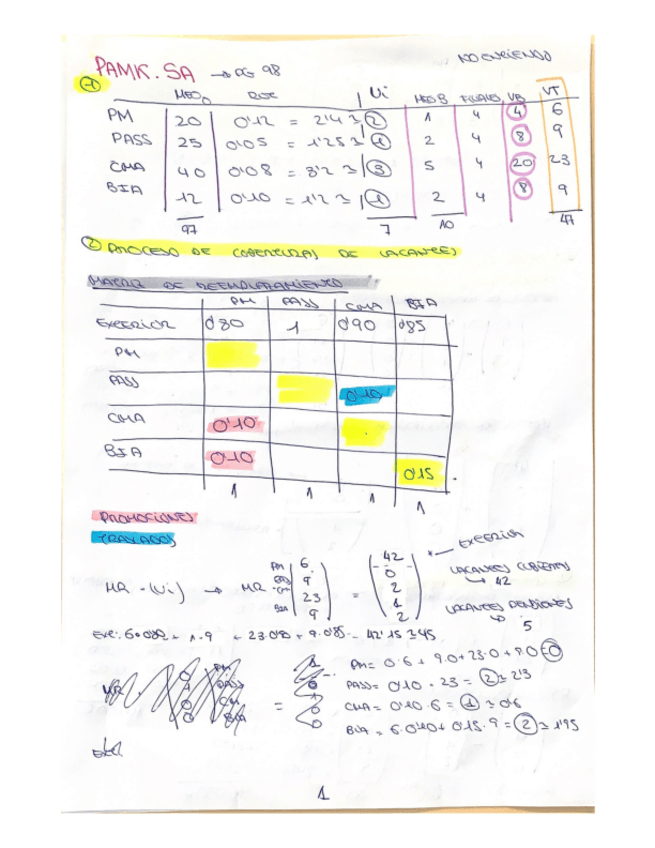 NO ENTIENDO
PAMK. SA → PG 98
1
MEO0 ROT Vi MEO B FINALES VB VT
PM 20 0'12 = 2'4 ≃ 2 1 4 4 6
PASS 25 0'05 = 1'25 ≃ 1 2 4 8 9
CMA 40 0'08 = 3'2 ≃ 3 5 4 20 23
BIA 12 0'10 = 1'2 ≃ 1 2 4 8 9
97 7 10 47
2 PROCESO DE COBERTURAS DE VACANTES
MATRIZ DE REEMPLAZAMIENTO
PM PASS CMA BIA
EXTERIOR 0'80 1 0'90 0'85
PM
PASS 0'10
CMA 0'10
BIA 0'10 0'15
1 1 1 1
PROMOCIONES
TRASLADOS
EXTERIOR
MR · (Vi) → MR · PM PASS CMA BIA ( 6 9 23 9 ) = ( 42 0 2 1 2 )
VACANTES CUBIERTAS
→ 42
VACANTES PENDIENTES
→ 5
EXT: 6·0'80 + 1·9 + 23·0'90 + 9·0'85 = 42'15 ≃ 45
PM = 0·6 + 9·0 + 23·0 + 9·0 = 0
PASS = 0'10 · 23 = 2 ≃ 2'3
CMA = 0'10 · 6 = 1 ≃ 0'6
BIA = 6·0'10 + 0'15·9 = 2 ≃ 1'95
1